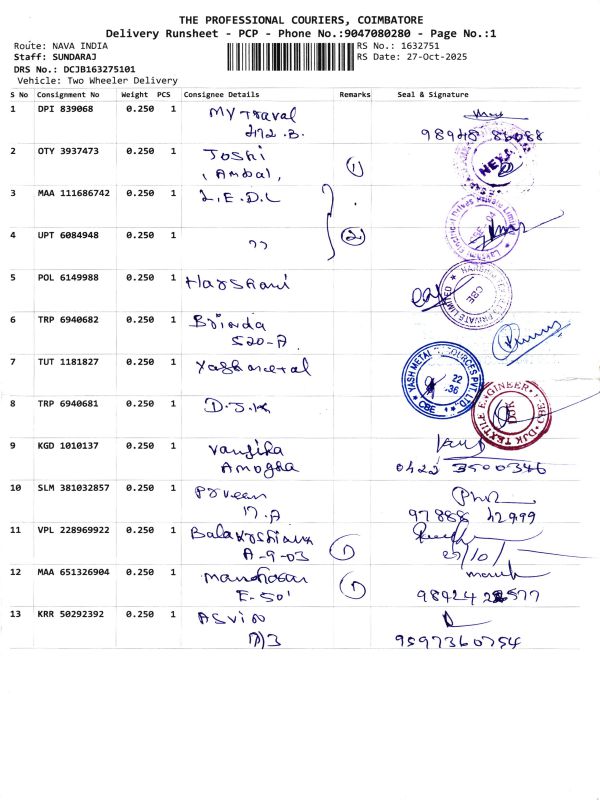 THE PROFESSIONAL COURIERS, COIMBATORE
Delivery Runsheet - PCP - Phone No.:9047080280 - Page No.:1
Route: NAVA INDIA
RS No.: 1632751
Staff: SUNDARAJ
RS Date: 27-Oct-2025
DRS No.: DCJB163275101
Vehicle: Two Wheeler Delivery
S No Consignment No Weight PCS Consignee Details Remarks Seal & Signature
1 DPI 839068 0.250 1 My Traval
212.B.
2 OTY 3937473 0.250 1 Joshi
Ambal, 1
3 MAA 111686742 0.250 1 L.E.D.L
4 UPT 6084948 0.250 1 " 2
5 POL 6149988 0.250 1 Harshani
6 TRP 6940682 0.250 1 Brinda
520-A
7 TUT 1181827 0.250 1 Yashmetal
YASH METAL RESOURCES PVT LTD
CBE
8 TRP 6940681 0.250 1 D.J.K
DJK TEXTILE ENGINEER
9 KGD 1010137 0.250 1 Vanjika
Amogha 0422 3500346
10 SLM 381032857 0.250 1 Praveen
17.A 97888 42999
11 VPL 228969922 0.250 1
A-9-03 1 27/10/
12 MAA 651326904 0.250 1
E-501 1
13 KRR 50292392 0.250 1 Asvin
9597360754